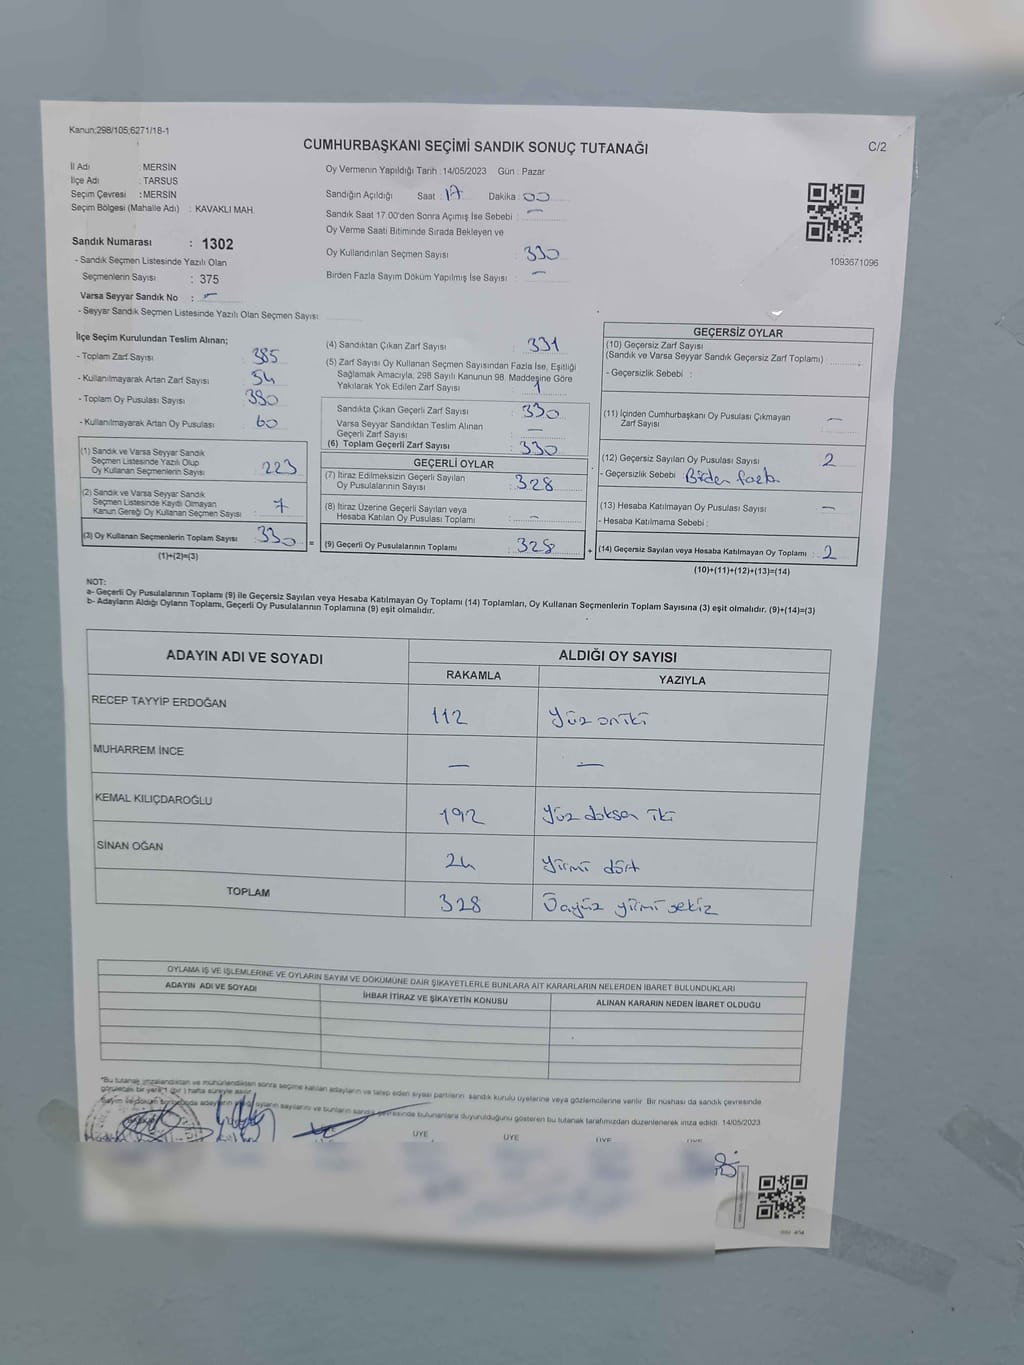 Kanun:298/105;6271/18-1
CUMHURBAŞKANI SEÇİMİ SANDIK SONUÇ TUTANAĞI
C/2
İl Adı : MERSİN
İlçe Adı : TARSUS
Seçim Çevresi : MERSİN
Seçim Bölgesi (Mahalle Adı) : KAVAKLI MAH.
Sandık Numarası : 1302
- Sandık Seçmen Listesinde Yazılı Olan
Seçmenlerin Sayısı : 375
Varsa Seyyar Sandık No : –
- Seyyar Sandık Seçmen Listesinde Yazılı Olan Seçmen Sayısı:
Oy Vermenin Yapıldığı Tarih :14/05/2023 Gün : Pazar
Sandığın Açıldığı Saat : 17 Dakika : 00
Sandık Saat 17.00'den Sonra Açımış İse Sebebi : –
Oy Verme Saati Bitiminde Sırada Bekleyen ve
Oy Kullandırılan Seçmen Sayısı : 330
Birden Fazla Sayım Döküm Yapılmış İse Sayısı : –
1093671096
İlçe Seçim Kurulundan Teslim Alınan;
- Toplam Zarf Sayısı : 385
- Kullanılmayarak Artan Zarf Sayısı : 54
- Toplam Oy Pusulası Sayısı : 390
- Kullanılmayarak Artan Oy Pusulası : 60
(1) Sandık ve Varsa Seyyar Sandık
Seçmen Listesinde Yazılı Olup
Oy Kullanan Seçmenlerin Sayısı : 223
(2) Sandık ve Varsa Seyyar Sandık
Seçmen Listesinde Kayıtlı Olmayan
Kanun Gereği Oy Kullanan Seçmen Sayısı : 7
(3) Oy Kullanan Seçmenlerin Toplam Sayısı : 330
(1)+(2)=(3)
=
(4) Sandıktan Çıkan Zarf Sayısı : 331
(5) Zarf Sayısı Oy Kullanan Seçmen Sayısından Fazla İse, Eşitliği
Sağlamak Amacıyla, 298 Sayılı Kanunun 98. Maddesine Göre
Yakılarak Yok Edilen Zarf Sayısı : 1
Sandıkta Çıkan Geçerli Zarf Sayısı : 330
Varsa Seyyar Sandıktan Teslim Alınan
Geçerli Zarf Sayısı : –
(6) Toplam Geçerli Zarf Sayısı : 330
GEÇERLİ OYLAR
(7) İtiraz Edilmeksizin Geçerli Sayılan
Oy Pusulalarının Sayısı : 328
(8) İtiraz Üzerine Geçerli Sayılan veya
Hesaba Katılan Oy Pusulası Toplamı : –
(9) Geçerli Oy Pusulalarının Toplamı : 328
+
GEÇERSİZ OYLAR
(10) Geçersiz Zarf Sayısı
(Sandık ve Varsa Seyyar Sandık Geçersiz Zarf Toplamı) :
- Geçersizlik Sebebi :
(11) İçinden Cumhurbaşkanı Oy Pusulası Çıkmayan
Zarf Sayısı : –
(12) Geçersiz Sayılan Oy Pusulası Sayısı : 2
- Geçersizlik Sebebi : Birden fazla
(13) Hesaba Katılmayan Oy Pusulası Sayısı : –
- Hesaba Katılmama Sebebi :
(14) Geçersiz Sayılan veya Hesaba Katılmayan Oy Toplamı : 2
(10)+(11)+(12)+(13)=(14)
NOT:
a- Geçerli Oy Pusulalarının Toplamı (9) ile Geçersiz Sayılan veya Hesaba Katılmayan Oy Toplamı (14) Toplamları, Oy Kullanan Seçmenlerin Toplam Sayısına (3) eşit olmalıdır. (9)+(14)=(3)
b- Adayların Aldığı Oyların Toplamı, Geçerli Oy Pusulalarının Toplamına (9) eşit olmalıdır.
ADAYIN ADI VE SOYADI ALDIĞI OY SAYISI
RAKAMLA YAZIYLA
RECEP TAYYİP ERDOĞAN 112 Yüz oniki
MUHARREM İNCE – –
KEMAL KILIÇDAROĞLU 192 Yüz doksan iki
SİNAN OĞAN 24 Yirmi dört
TOPLAM 328 Üçyüz yirmi sekiz
OYLAMA İŞ VE İŞLEMLERİNE VE OYLARIN SAYIM VE DÖKÜMÜNE DAİR ŞİKAYETLERLE BUNLARA AİT KARARLARIN NELERDEN İBARET BULUNDUKLARI
ADAYIN ADI VE SOYADI İHBAR İTİRAZ VE ŞİKAYETİN KONUSU ALINAN KARARIN NEDEN İBARET OLDUĞU
*Bu tutanak imzalandıktan ve mühürlendikten sonra seçime katılan adayların ve talep eden siyasi partilerin sandık kurulu üyelerine veya gözlemcilerine verilir. Bir nüshası da sandık çevresinde
görülecek bir yere 1 (bir) hafta süreyle asılır.
Sayım ve döküm sonucunda adayların aldığı oyların sayılarını ve bunların sandık çevresinde bulunanlara duyurulduğunu gösteren bu tutanak tarafımızdan düzenlenerek imza edildi. 14/05/2023
ÜYE ÜYE ÜYE ÜYE